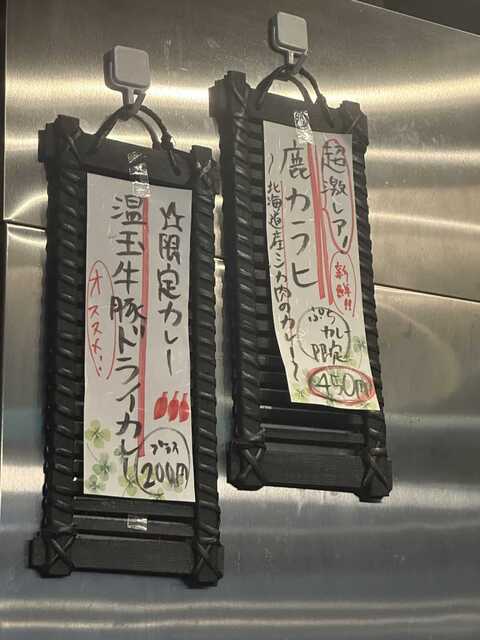 超激レア!
鹿カラヒ
~北海道産シカ肉のカレー~
新鮮!!
ぷち
カレー
限定
450円
☆限定カレー
温玉牛豚ドライカレー
オススメ!!
プラス
200円